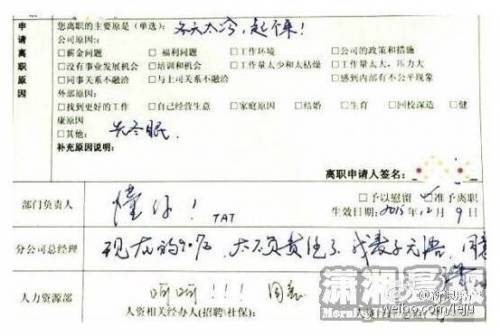 申请离职原因
您离职的主要原是(单选): 冬天太冷,起不来!
公司原因:
□薪金问题 □福利问题 □工作环境 □公司的政策和措施
□没有事业发展机会 □培训和机会 □工作量太少和太枯燥 □工作量太大,压力大
□同事关系不融洽 □与上司关系不融洽 □感到内部有不公平现象
外部原因:
□找到更好的工作 □自己经营生意 □家庭原因 □结婚 □生育 □回校深造 □健
康原因
□其他: 先冬眠.
补充原因说明:
离职申请人签名:
部门负责人 懂你! TAT □予以慰留 准予离职
生效日期: 2015年12月9日
分公司总经理 现在的90后, 太不负责任了, 同意
人力资源部 呵呵!!! 同意
人资相关经办人(招聘\社保):
潇湘晨报